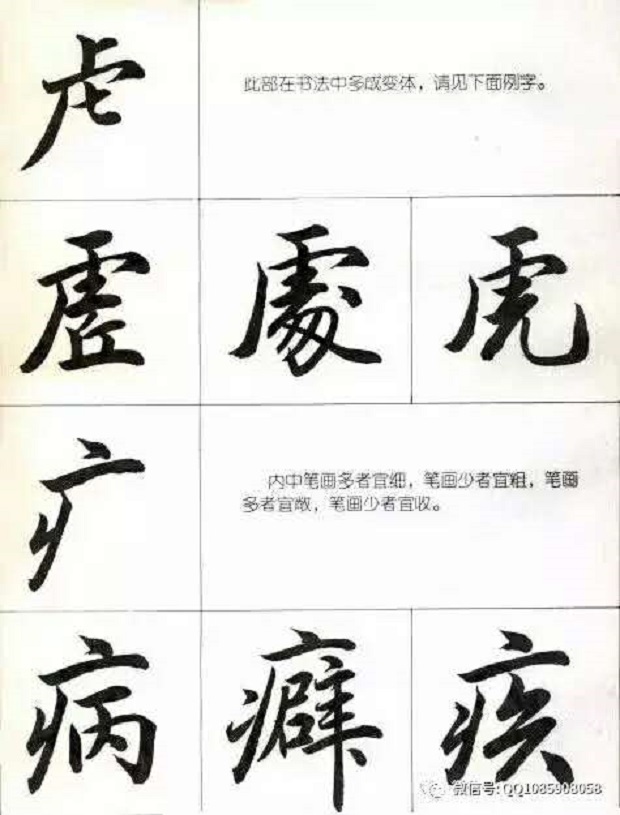 虍
此部在书法中多成变体，请见下面例字。
虚 處 虎
疒
内中笔画多者宜细，笔画少者宜粗，笔画
多者宜敞，笔画少者宜收。
病 癖 疾
微信号:QQ1085908058